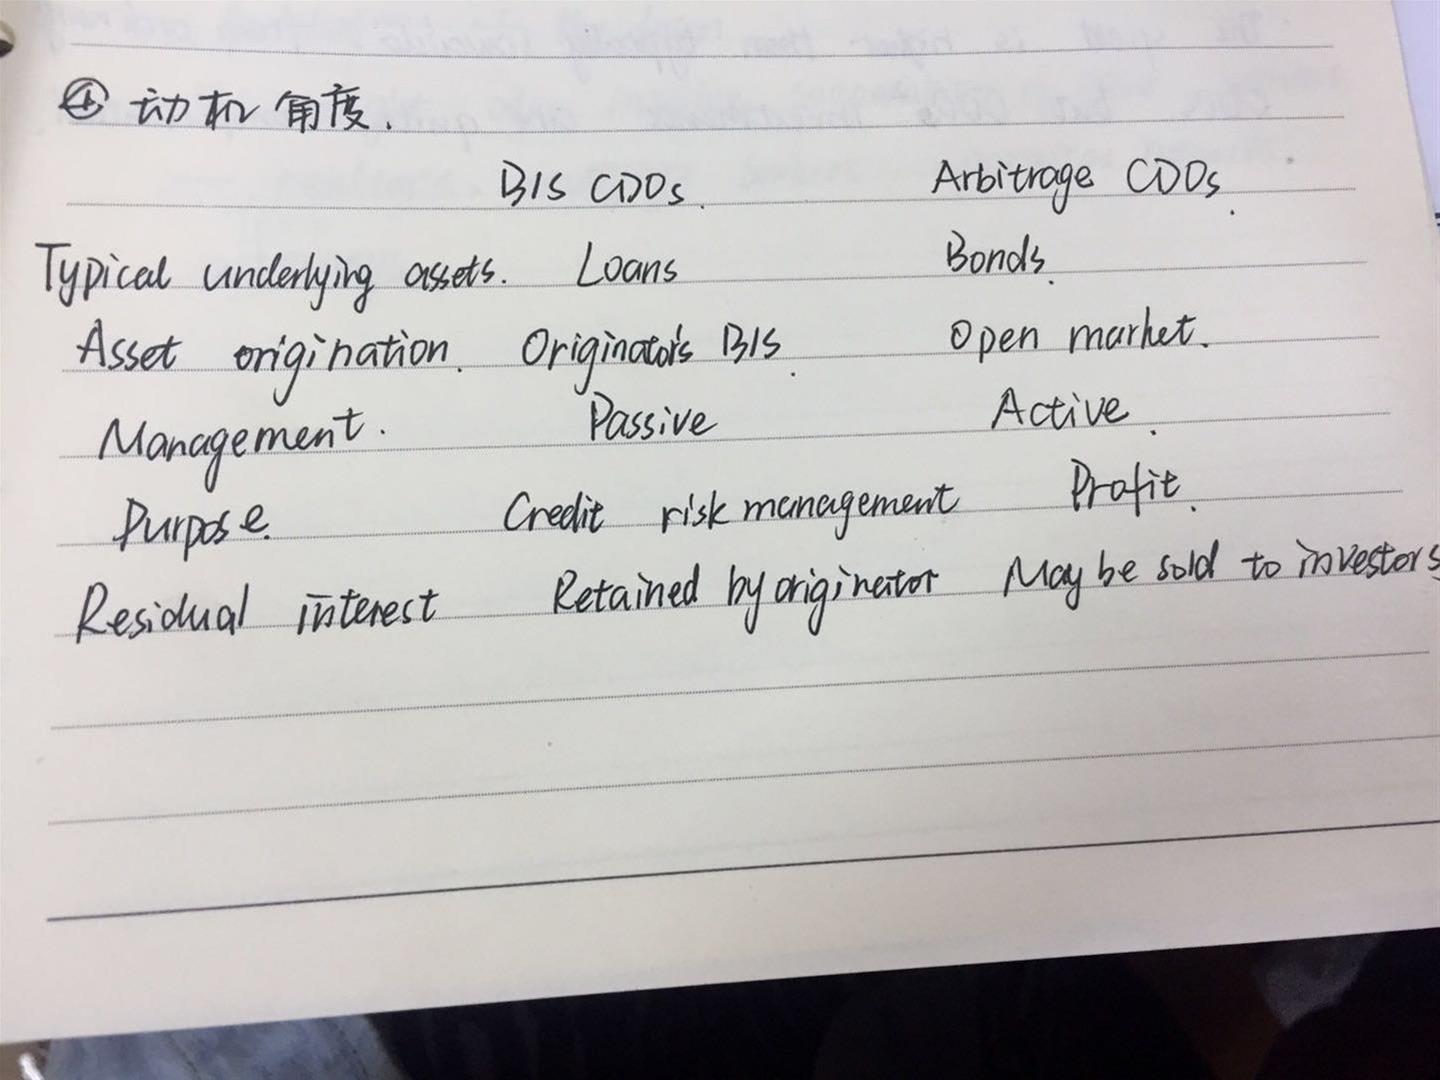 ④ 动机角度.
B/S CDOs. Arbitrage CDOs.
Typical underlying assets. Loans Bonds.
Asset origination. Originator's B/S. Open market.
Management. Passive Active.
Purpose. Credit risk management Profit.
Residual interest Retained by originator May be sold to investors